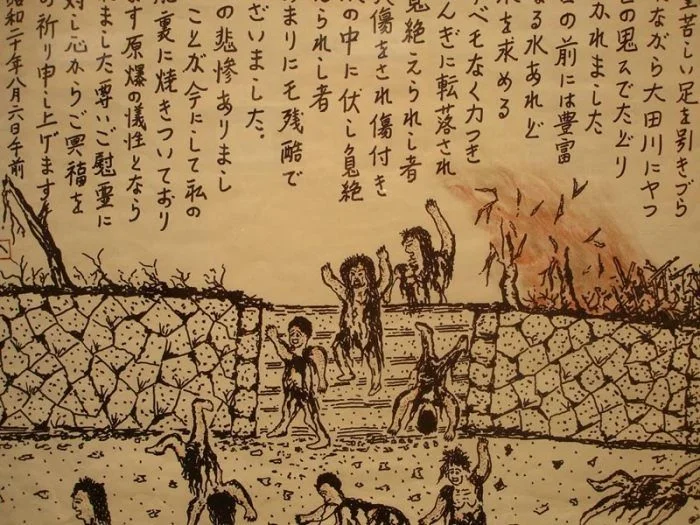 苦しい足を引きづら
ながら大田川にやつ
の思ひでたどり
かれました
の前には豊富
なる水あれど
を求める
べもなく力つき
んぎに転落され
息絶えられし者
傷をされ傷付き
の中に伏し息絶
えられし者
まりにも残酷で
ざいました。
の悲惨ありまし
ことが今にして私の
裏に焼きついており
ます原爆の犠性となら
れました尊いご慰霊に
対し心からご冥福を
祈り申し上げます
昭和二十年八月六日午前